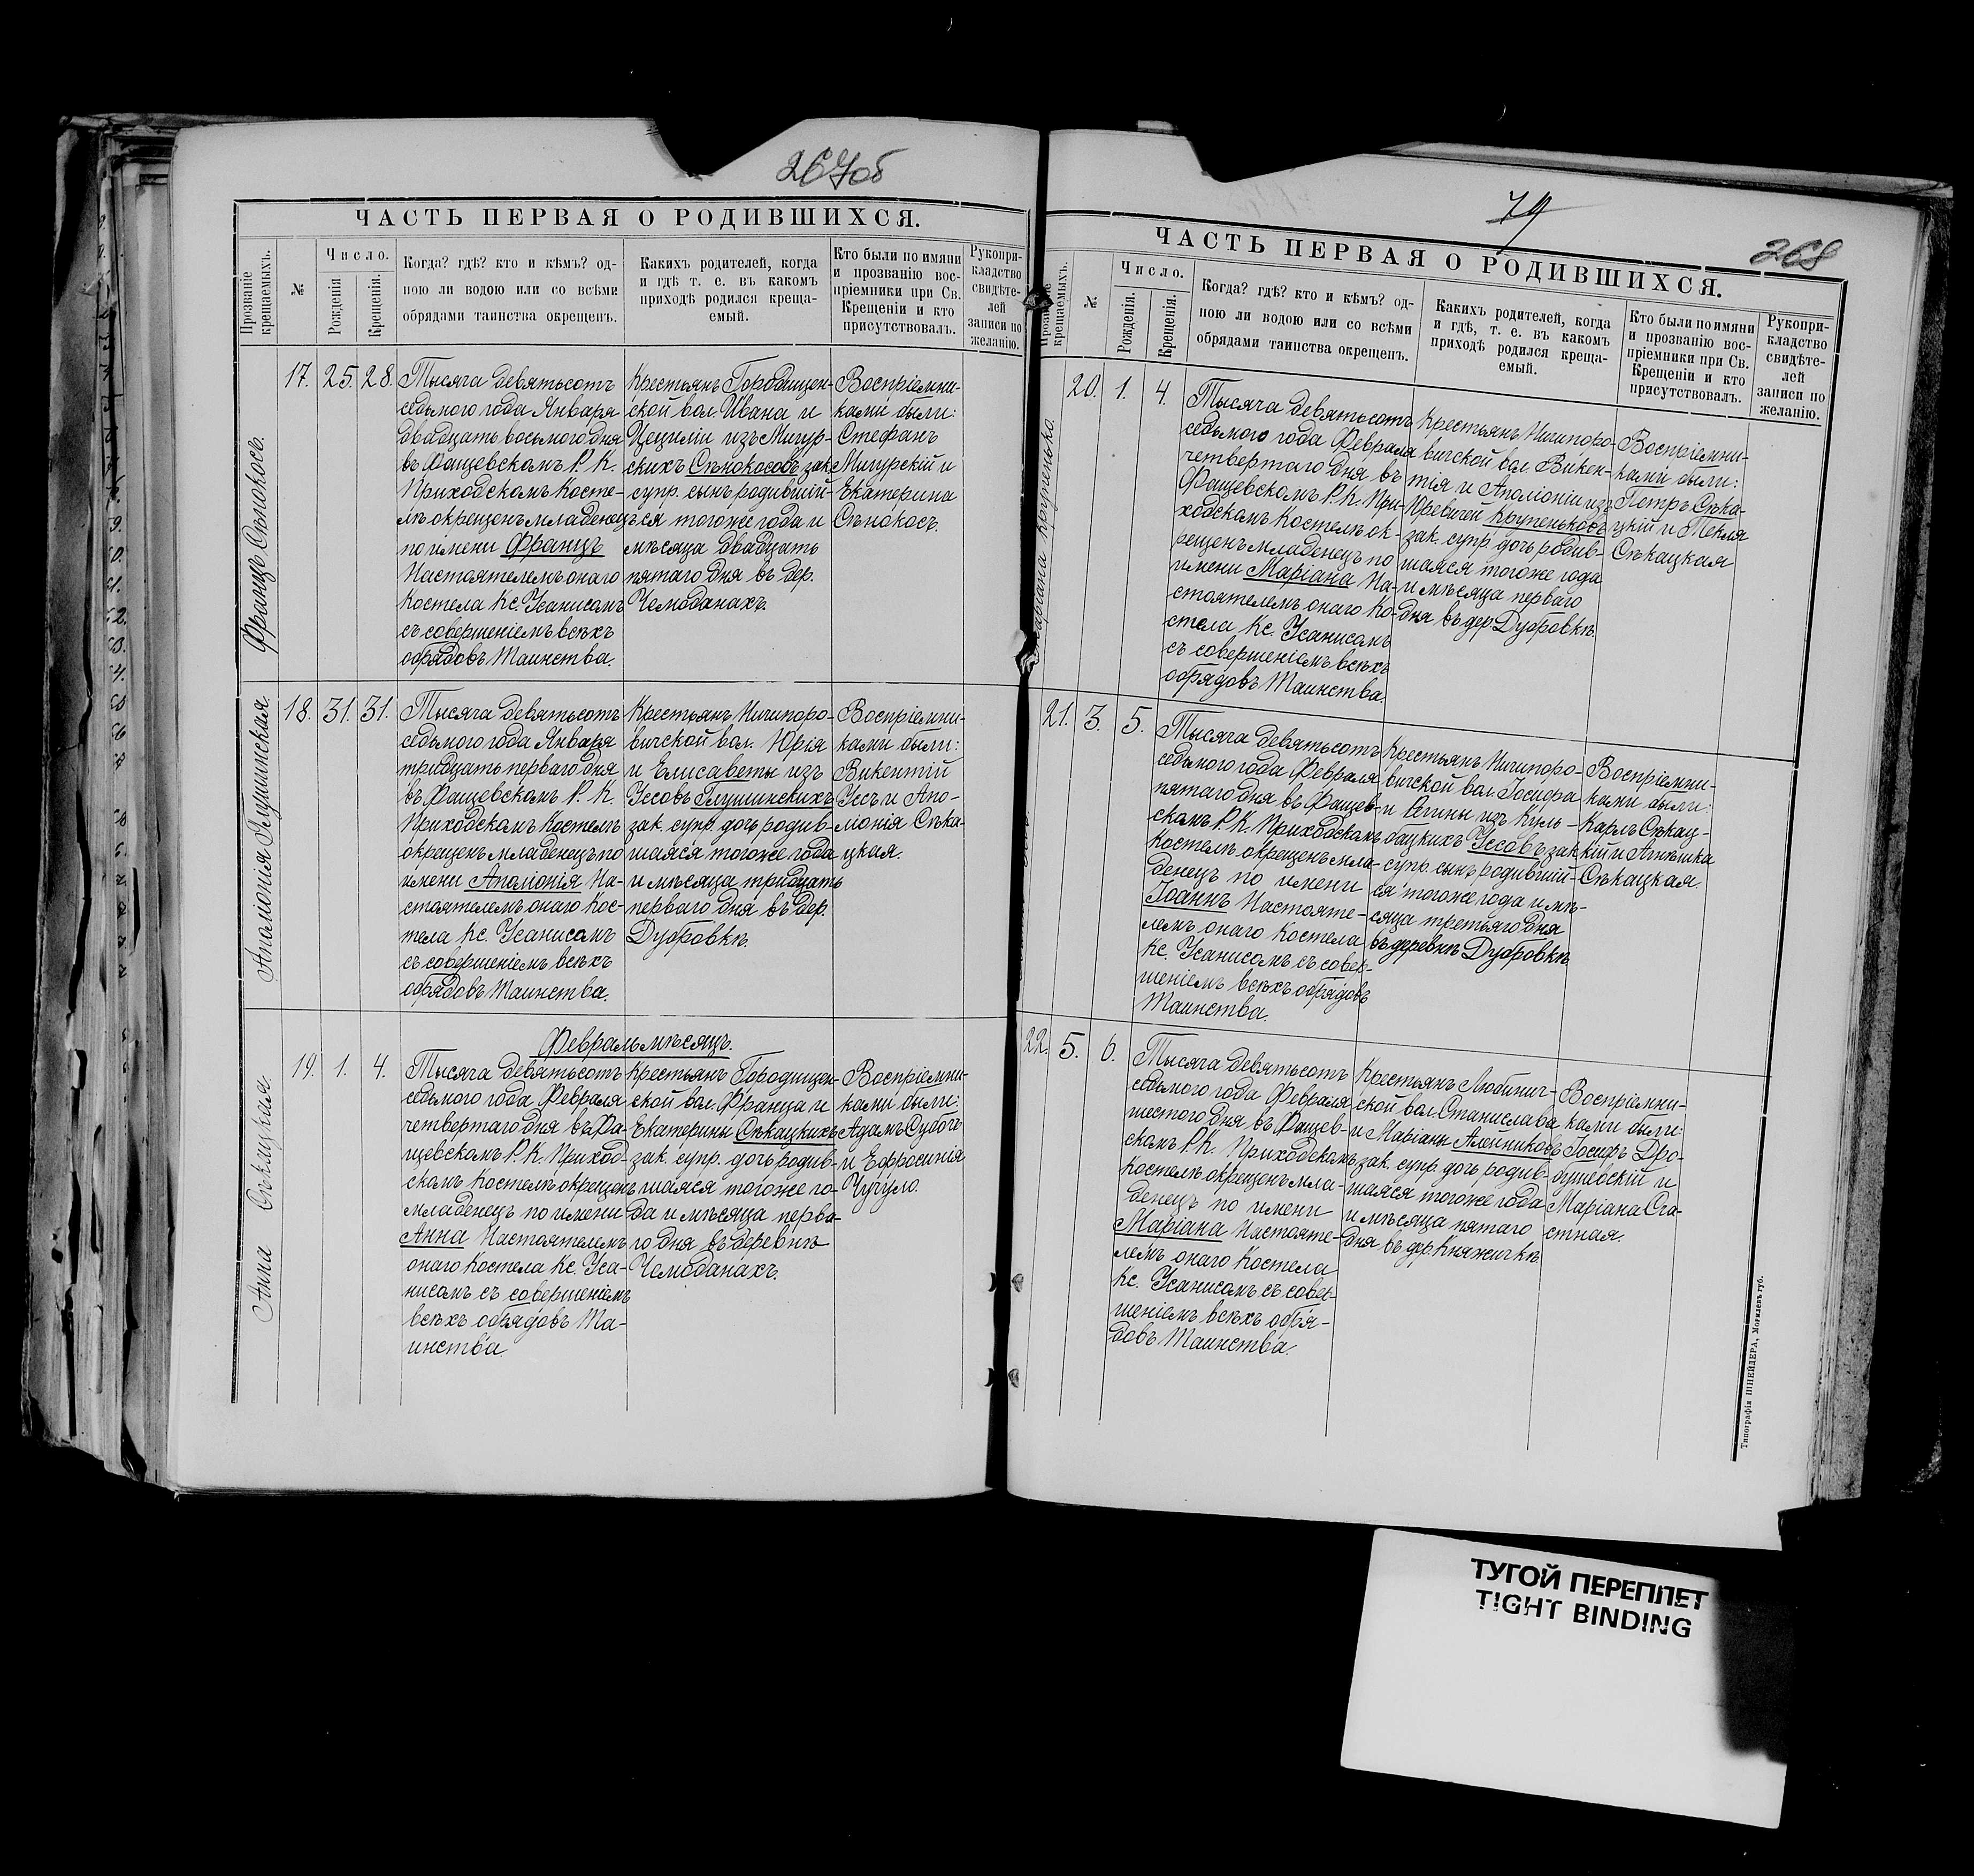 267об
ЧАСТЬ ПЕРВАЯ О РОДИВШИХСЯ.
Прозваніе
крещаемыхъ.
№
Число.
Рожденія
Крещенія.
Когда? гдѣ? кто и кѣмъ? од-
ною ли водою или со всѣми
обрядами таинства окрещенъ.
Какихъ родителей, когда
и гдѣ т. е. въ какомъ
приходѣ родился креща-
емый.
Кто были по имяни
и прозванію вос-
пріемники при Св.
Крещеніи и кто
присутствовалъ.
Рукопри-
кладство
свидѣте-
лей
записи по
желанію.
Францъ Сѣнокосъ.
17. 25. 28.
Тысяча девятьсотъ
седьмого года Января
двадцать восьмого дня
въ Фащевскомъ Р. К.
Приходскомъ Косте-
лѣ окрещенъ младенецъ
по имени Францъ
Настоятелемъ онаго
Костела Кс. Усанисомъ
съ совершеніемъ всѣхъ
обрядовъ Таинства.
Крестьянъ Городищен-
ской вол. Ивана и
Цециліи изъ Мигур-
скихъ Сѣнокосовъ зак.
супр. сынъ родившій-
ся тогоже года и
мѣсяца двадцать
пятаго дня въ дер.
Чемоданахъ.
Воспріемни-
ками были:
Стефанъ
Мигурскій и
Екатерина
Сѣнокосъ.
Аполонія Глушинская.
18. 31. 31.
Тысяча девятьсотъ
седьмого года Января
тридцать перваго дня
въ Фащевскомъ Р. К.
Приходскомъ Костелѣ
окрещенъ младенецъ по
имени Аполонія На-
стоятелемъ онаго Кос-
тела Кс. Усанисомъ
съ совершеніемъ всѣхъ
обрядовъ Таинства.
Крестьянъ Ничипоро-
вичской вол. Юрія
и Елисаветы изъ
Уссовъ Глушинскихъ
зак. супр. дочь родив-
шаяся тогоже года
и мѣсяца тридцать
перваго дня въ дер.
Дубровкѣ.
Воспріемни-
ками были:
Викентій
Уссъ и Апо-
лонія Сѣка-
цкая.
Февраль мѣсяцъ.
Анна Сѣкацкая.
19. 1. 4.
Тысяча девятьсотъ
седьмого года Февраля
четвертаго дня въ Фа-
щевскомъ Р. К. Приход-
скомъ Костелѣ окрещенъ
младенецъ по имени
Анна Настоятелемъ
онаго Костела Кс. Уса-
нисомъ съ совершеніемъ
всѣхъ обрядовъ Та-
инства.
Крестьянъ Городищен-
ской вол. Франца и
Екатерины Сѣкацкихъ
зак. супр. дочь родив-
шаяся тогоже го-
да и мѣсяца перва-
го дня въ деревнѣ
Чемоданахъ.
Воспріемни-
ками были:
Адамъ Суботъ
и Ефросинія
Чугуло.
79
268
ЧАСТЬ ПЕРВАЯ О РОДИВШИХСЯ.
крещаемыхъ.
№
Число.
Рожденія.
Крещенія.
Когда? гдѣ? кто и кѣмъ? од-
ною ли водою или со всѣми
обрядами таинства окрещенъ.
Какихъ родителей, когда
и гдѣ, т. е. въ какомъ
приходѣ родился креща-
емый.
Кто были по имяни
и прозванію вос-
пріемники при Св.
Крещеніи и кто
присутствовалъ.
Рукопри-
кладство
свидѣте-
лей
записи по
желанію.
Маріана Крупенько.
20. 1. 4.
Тысяча девятьсотъ
седьмого года Февраля
четвертаго дня въ
Фащевскомъ Р. К. При-
ходскомъ Костелѣ ок-
рещенъ младенецъ по
имени Маріана На-
стоятелемъ онаго Ко-
стела Кс. Усанисомъ
съ совершеніемъ всѣхъ
обрядовъ Таинства.
Крестьянъ Ничипоро-
вичской вол. Викен-
тія и Аполоніи изъ
Юревичей Крупеньковъ
зак. супр. дочь родив-
шаяся тогоже года
и мѣсяца перваго
дня въ дер. Дубровкѣ.
Воспріемни-
ками были:
Петръ Сѣка-
цкій и Текля
Сѣкацкая
21. 3. 5.
Тысяча девятьсотъ
седьмого года Февраля
пятаго дня въ Фащев-
скомъ Р. К. Приходскомъ
Костелѣ окрещенъ мла-
денецъ по имени
Іоаннъ Настояте-
лемъ онаго Костела
Кс. Усанисомъ съ совер-
шеніемъ всѣхъ обрядовъ
Таинства.
Крестьянъ Ничипоро-
вичской вол. Іосифа
и Регины изъ Куль-
бацкихъ Уссовъ зак.
супр. сынъ родившій-
ся тогоже года и мѣ-
сяца третьяго дня
въ деревнѣ Дубровкѣ
Воспріемни-
ками были:
Карлъ Сѣкац-
кій и Агнѣшка
Сѣкацкая.
22. 5. 6.
Тысяча девятьсотъ
седьмого года Февраля
шестого дня въ Фащев-
скомъ Р. К. Приходскомъ
Костелѣ окрещенъ мла-
денецъ по имени
Маріана Настояте-
лемъ онаго Костела
Кс. Усанисомъ съ совер-
шеніемъ всѣхъ обря-
довъ Таинства.
Крестьянъ Любинич-
ской вол. Станислава
и Маріаны Алейниковъ
зак. супр. дочь родив-
шаяся тогоже года
и мѣсяца пятаго
дня въ дер. Княжичкѣ.
Воспріемни-
ками были:
Іосифъ Дро-
бушевскій и
Маріана Сча-
стная.
Типографія ШНЕЙДЕРА, Могилевъ губ.
ТУГОЙ ПЕРЕПЛЕТ
TIGHT BINDING